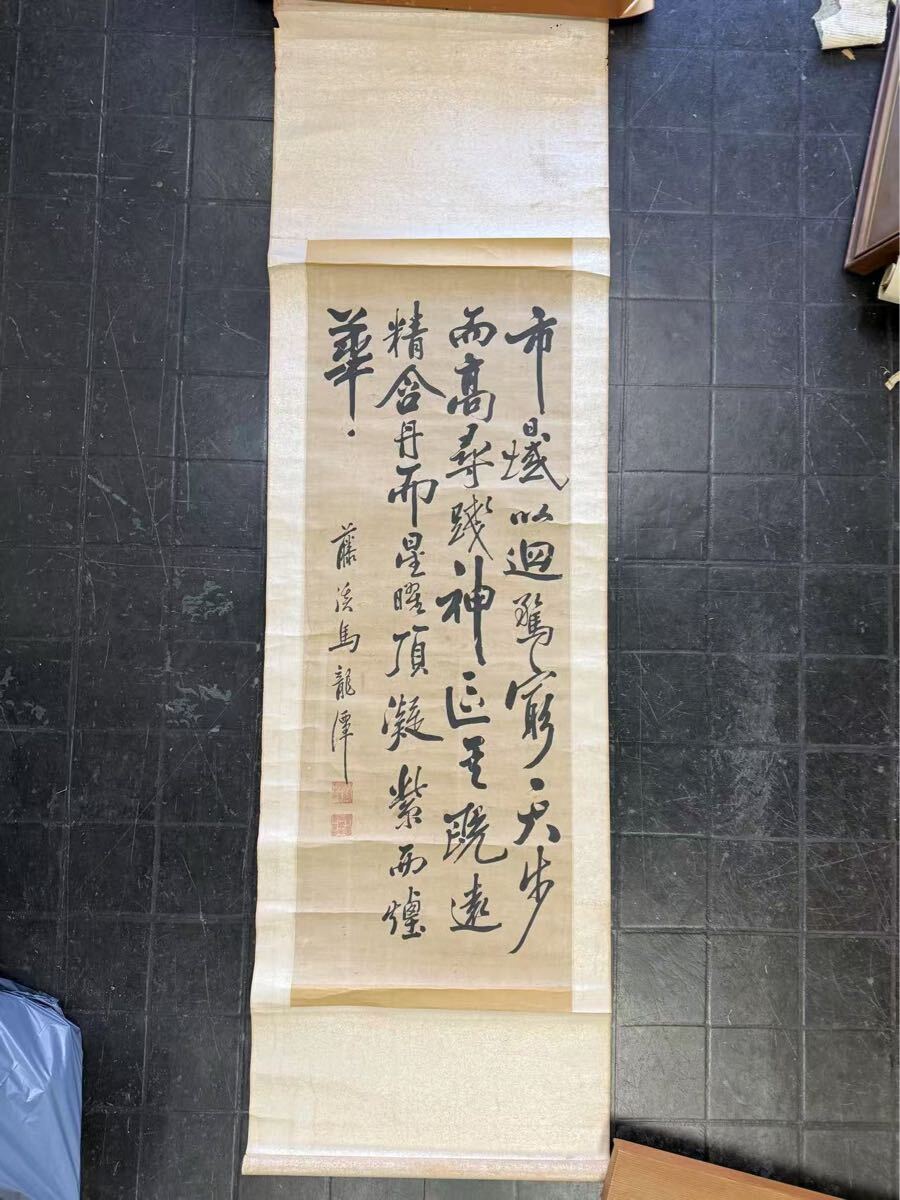 帀日域以迴騖窮天步
而高尋踐神區其既遠
精含丹而星曜頂凝紫而煙
華
藤溪馬龍潭